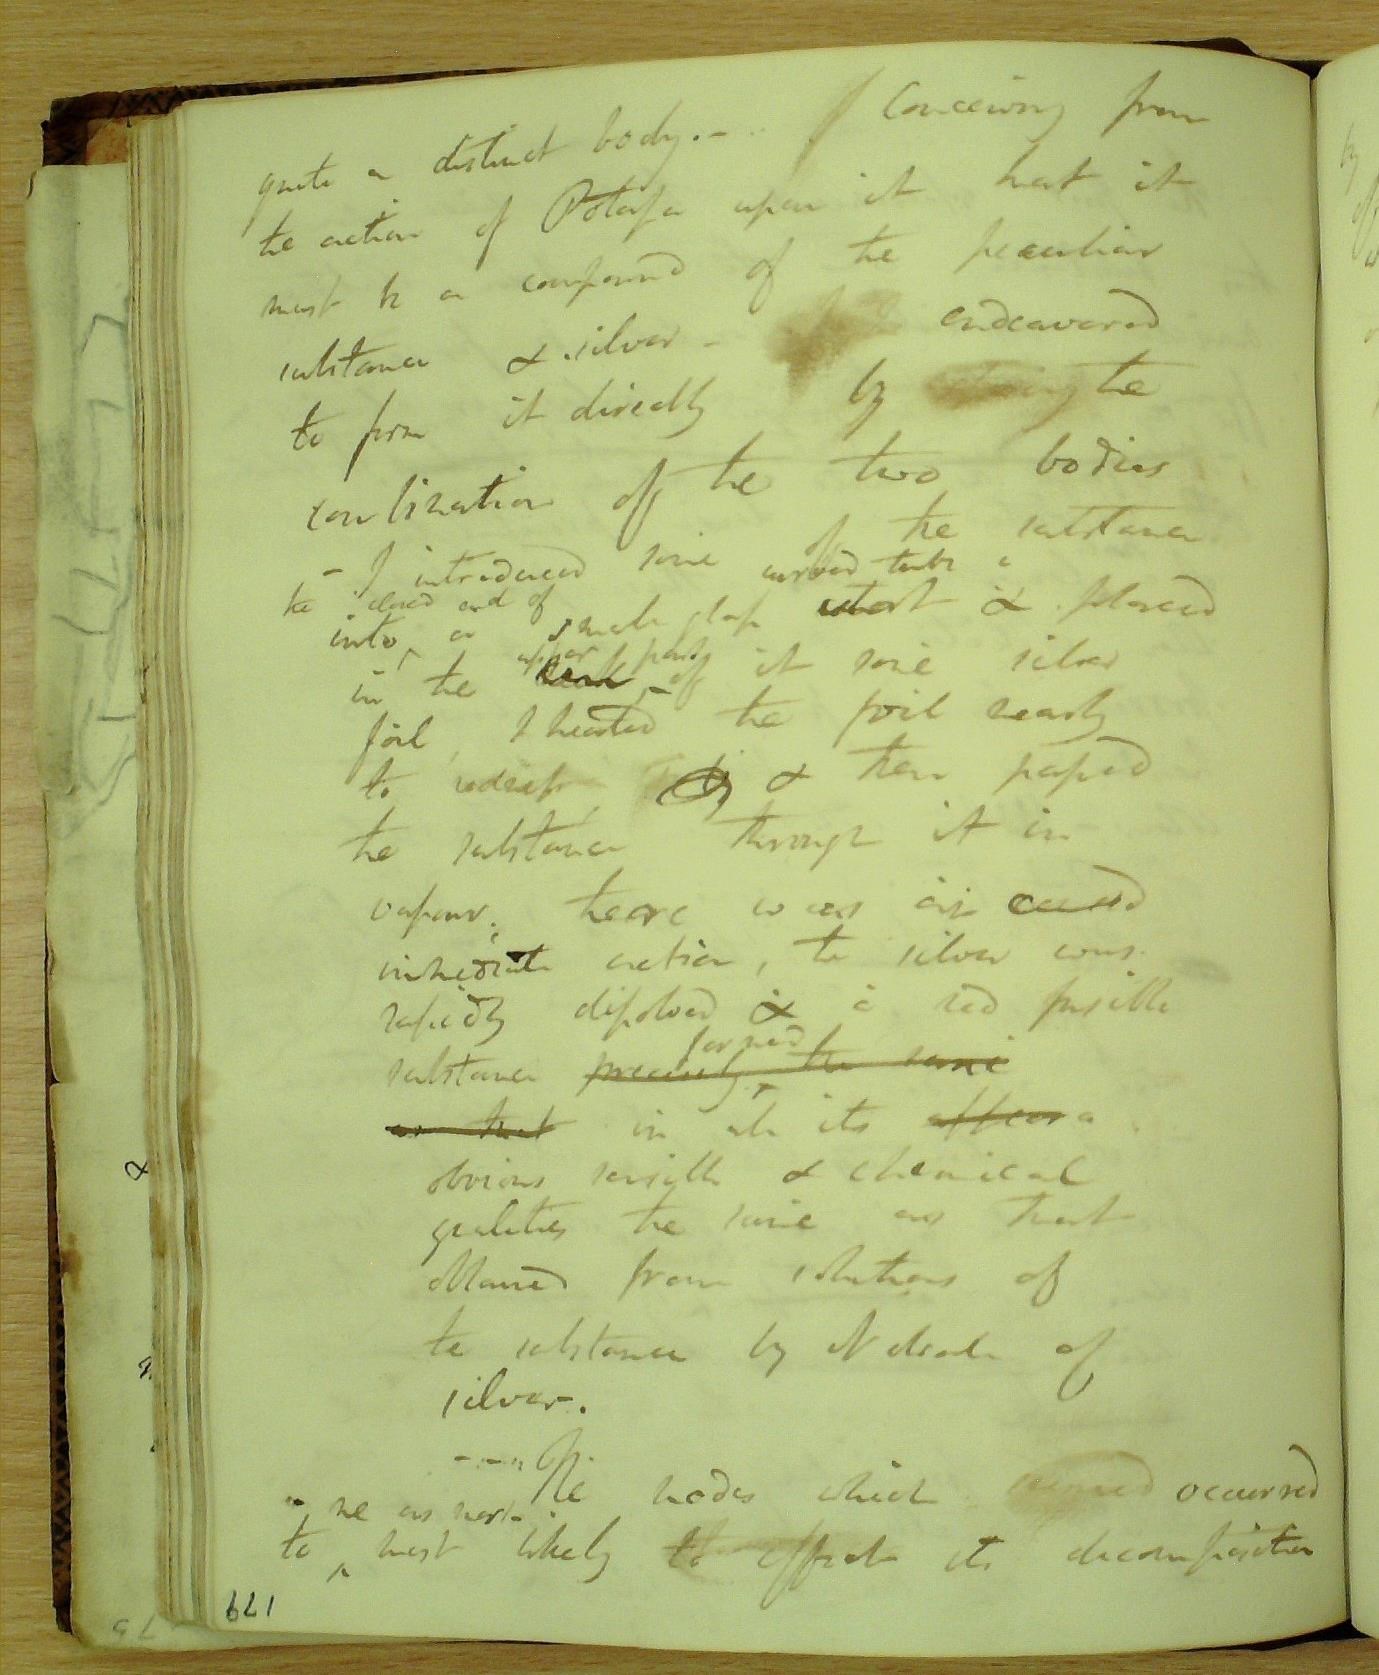 quite a distinct body. - Conceiving from
the action of Potassa upon it that it
must be a compound of the peculiar
substance & silver - endeavored
to form it directly by the
combination of the two bodies
- I introduced some of the substance
the closed end of curved tube
into a small glass & placed
upper part
in the of it some silver
foil, I heated the foil nearly
to redness & then passed
the substance through it in
vapour. there was an
immediate action, the silver was
rapidly dissolved & a red fusible
formed
substance precisely the same
as that in all its
obvious sensible & chemical
qualities the same as that
obtained from solutions of
the substance by Nitrate of
silver.
The modes which occurred
me as most
to most likely to effect its decomposition
179